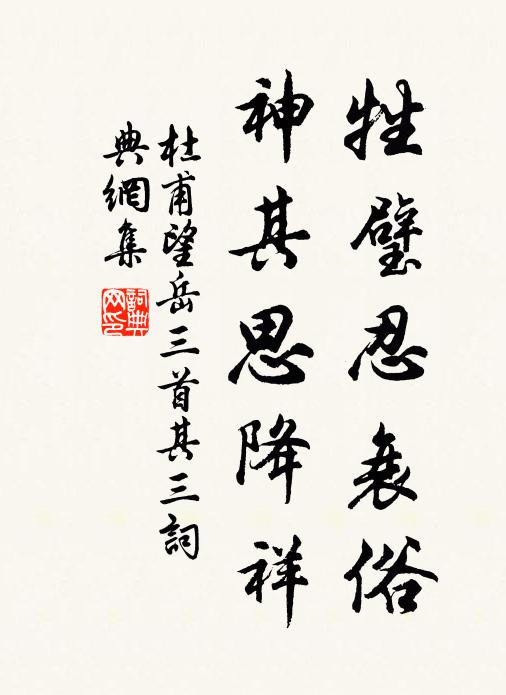 牲璧忍衰俗
神其思降祥
杜甫望岳三首其三詞
典網集
詞典網印